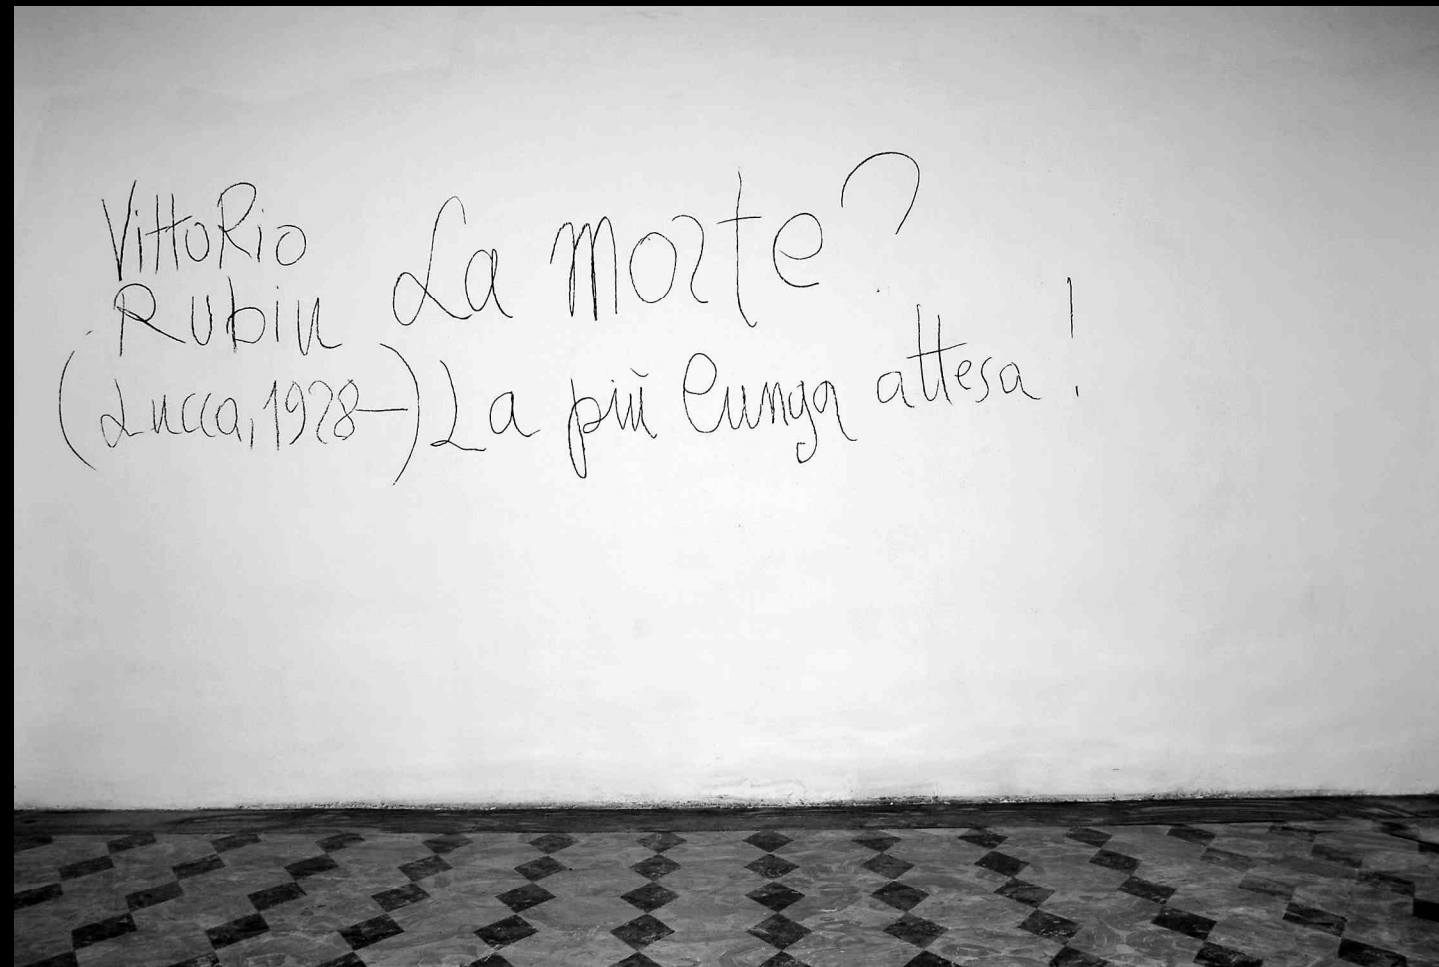 VittoRio
Rubin
(Lucca, 1928—)
La morte?
La più lunga attesa!